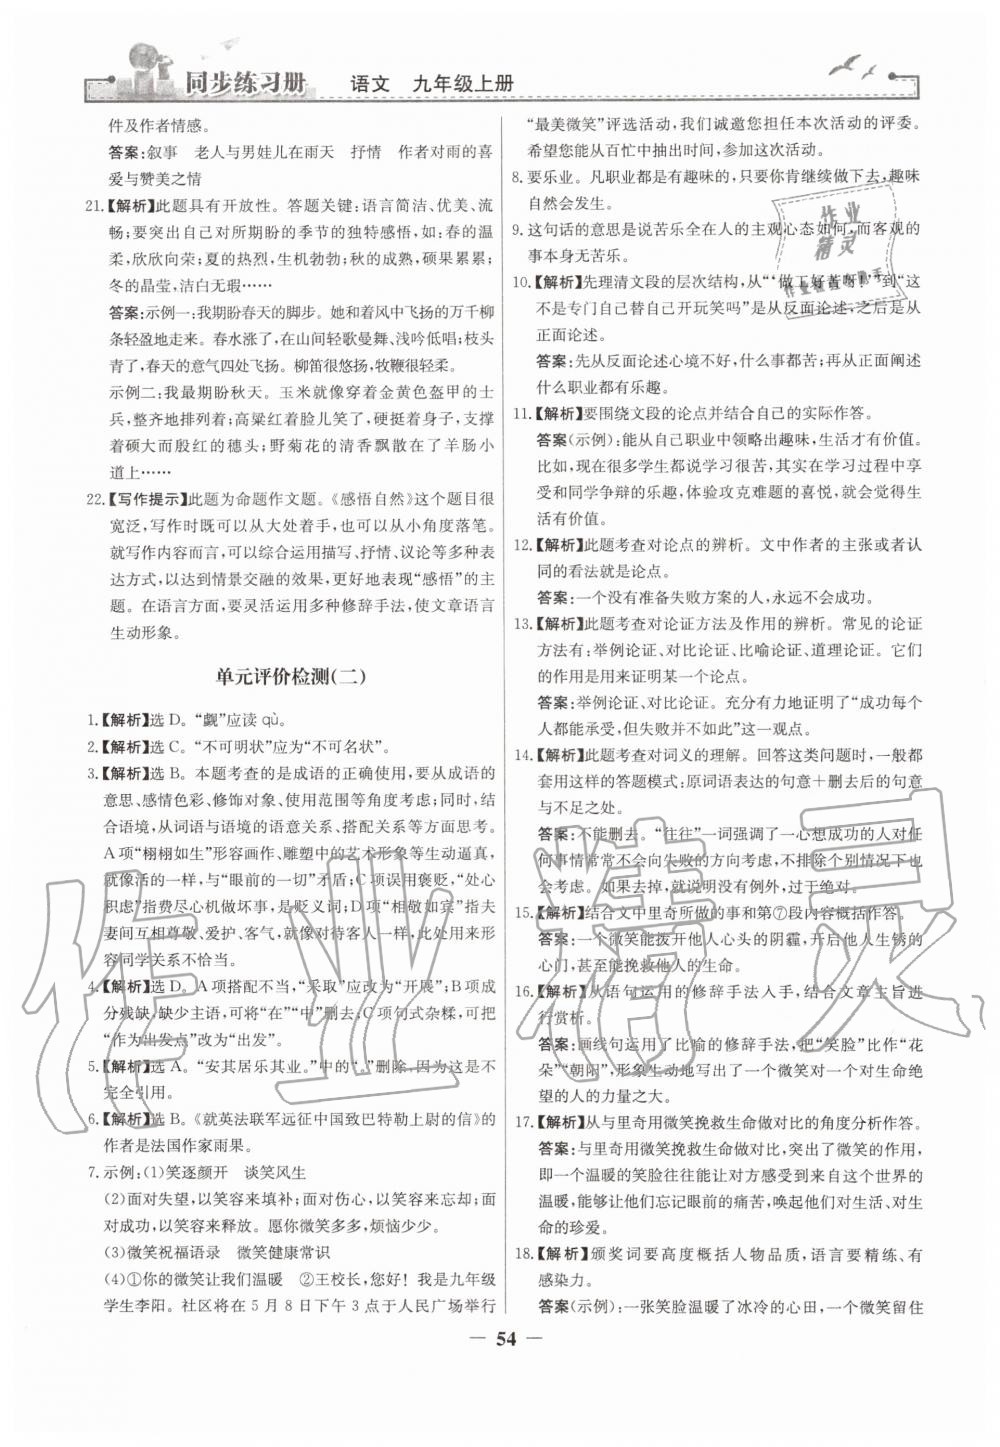 同步练习册 语文 九年级上册
件及作者情感。
答案:叙事 老人与男娃儿在雨天 抒情 作者对雨的喜
爱与赞美之情
21.【解析】此题具有开放性。答题关键:语言简洁、优美、流
畅;要突出自己对所期盼的季节的独特感悟,如:春的温
柔,欣欣向荣;夏的热烈,生机勃勃;秋的成熟,硕果累累;
冬的晶莹,洁白无瑕……
答案:示例一:我期盼春天的脚步。她和着风中飞扬的万千柳
条轻盈地走来。春水涨了,在山间轻歌曼舞、浅吟低唱;枝头
青了,春天的意气四处飞扬。柳笛很悠扬,牧鞭很轻柔。
示例二:我最期盼秋天。玉米就像穿着金黄色盔甲的士
兵,整齐地排列着;高粱红着脸儿笑了,硬挺着身子,支撑
着硕大而殷红的穗头;野菊花的清香飘散在了羊肠小
道上……
22.【写作提示】此题为命题作文题。《感悟自然》这个题目很
宽泛,写作时既可以从大处着手,也可以从小角度落笔。
就写作内容而言,可以综合运用描写、抒情、议论等多种表
达方式,以达到情景交融的效果,更好地表现“感悟”的主
题。在语言方面,要灵活运用多种修辞手法,使文章语言
生动形象。
单元评价检测(二)
1.【解析】选 D。“觑”应读 qù。
2.【解析】选 C。“不可明状”应为“不可名状”。
3.【解析】选 B。本题考查的是成语的正确使用,要从成语的
意思、感情色彩、修饰对象、使用范围等角度考虑;同时,结
合语境,从词语与语境的语意关系、搭配关系等方面思考。
A 项“栩栩如生”形容画作、雕塑中的艺术形象等生动逼真,
就像活的一样,与“眼前的一切”矛盾;C 项误用褒贬,“处心
积虑”指费尽心机做坏事,是贬义词;D 项“相敬如宾”指夫
妻间互相尊敬、爱护、客气,就像对待客人一样,此处用来形
容同学关系不恰当。
4.【解析】选 D。A 项搭配不当,“采取”应改为“开展”;B 项成
分残缺,缺少主语,可将“在”“中”删去;C 项句式杂糅,可把
“作为出发点”改为“出发”。
5.【解析】选 A。“安其居乐其业。”中的“。”删除,因为这是不
完全引用。
6.【解析】选 B。《就英法联军远征中国致巴特勒上尉的信》的
作者是法国作家雨果。
7. 示例:(1)笑逐颜开 谈笑风生
(2)面对失望,以笑容来填补;面对伤心,以笑容来忘却;面
对成功,以笑容来释放。愿你微笑多多,烦恼少少。
(3)微笑祝福语录 微笑健康常识
(4)①你的微笑让我们温暖 ②王校长,您好!我是九年级
学生李阳。社区将在 5 月 8 日下午 3 点于人民广场举行
“最美微笑”评选活动,我们诚邀您担任本次活动的评委。
希望您能从百忙中抽出时间,参加这次活动。
8. 要乐业。凡职业都是有趣味的,只要你肯继续做下去,趣味
自然会发生。
9. 这句话的意思是说苦乐全在人的主观心态如何,而客观的
事本身无苦乐。
10.【解析】先理清文段的层次结构,从“‘做工好苦呀!’”到“这
不是专门自己替自己开玩笑吗”是从反面论述,之后是从
正面论述。
答案:先从反面论述心境不好,什么事都苦;再从正面阐述
什么职业都有乐趣。
11.【解析】要围绕文段的论点并结合自己的实际作答。
答案(示例):能从自己职业中领略出趣味,生活才有价值。
比如,现在很多学生都说学习很苦,其实在学习过程中享
受和同学争辩的乐趣,体验攻克难题的喜悦,就会觉得生
活有价值。
12.【解析】此题考查对论点的辨析。文中作者的主张或者认
同的看法就是论点。
答案:一个没有准备失败方案的人,永远不会成功。
13.【解析】此题考查对论证方法及作用的辨析。常见的论证
方法有:举例论证、对比论证、比喻论证、道理论证。它们
的作用是用来证明某一个论点。
答案:举例论证、对比论证。充分有力地证明了“成功每个
人都能承受,但失败并不如此”这一观点。
14.【解析】此题考查对词义的理解。回答这类问题时,一般都
套用这样的答题模式:原词语表达的句意＋删去后的句意
与不足之处。
答案:不能删去。“往往”一词强调了一心想成功的人对任
何事情常常不会向失败的方向考虑,不排除个别情况下也
会考虑。如果去掉,就说明没有例外,过于绝对。
15.【解析】结合文中里奇所做的事和第⑦段内容概括作答。
答案:一个微笑能拨开他人心头的阴霾,开启他人生锈的
心门,甚至能挽救他人的生命。
16.【解析】从语句运用的修辞手法入手,结合文章主旨进
行赏析。
答案:画线句运用了比喻的修辞手法,把“笑脸”比作“花
朵”“朝阳”,形象生动地写出了一个微笑对一个对生命绝
望的人的力量之大。
17.【解析】从与里奇用微笑挽救生命做对比的角度分析作答。
答案:与里奇用微笑挽救生命做对比,突出了微笑的作用,
即一个温暖的笑脸往往能让对方感受到来自这个世界的
温暖,能够让他们忘记眼前的痛苦,唤起他们对生活、对生
命的珍爱。
18.【解析】颁奖词要高度概括人物品质,语言要精练、有
感染力。
答案(示例):一张笑脸温暖了冰冷的心田,一个微笑留住
— 54 —
作业
精灵
作业精灵